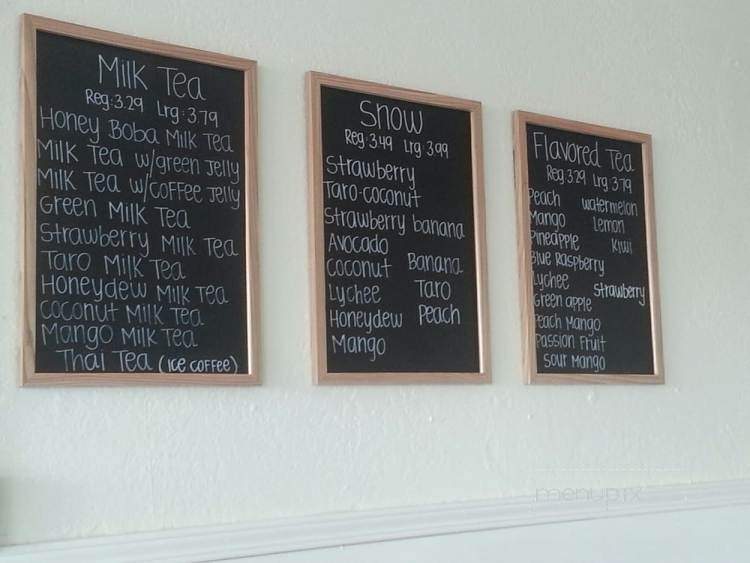 Milk Tea
Reg: 3.29 Lrg: 3.79
Honey Boba Milk Tea
Milk Tea w/green Jelly
Milk Tea w/coffee Jelly
Green Milk Tea
Strawberry Milk Tea
Taro Milk Tea
Honeydew Milk Tea
coconut Milk Tea
Mango Milk Tea
Thai Tea (Ice coffee)
Snow
Reg: 3.49 Lrg 3.99
Strawberry
Taro-coconut
Strawberry banana
Avocado
coconut Banana
Lychee Taro
Honeydew Peach
Mango
Flavored Tea
Reg 3.29 Lrg 3.79
Peach watermelon
Mango Lemon
Pineapple Kiwi
Blue Raspberry
Lychee strawberry
Green apple
Peach Mango
Passion Fruit
sour Mango
menupix